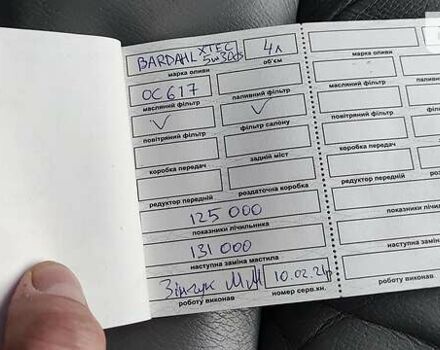 BARDAHL XTEC 5w30 4л
марка оливи об'єм
OC 617
масляний фільтр паливний фільтр
повітряний фільтр фільтр салону
коробка передач задній міст
редуктор передній роздаточна коробка
125 000
показники лічильника
131 000
наступна заміна мастила
10.02.21р
роботу виконав номер серв.кн.
марка оливи
масляний фільтр
повітряний фільтр
коробка передач
редуктор передній
показники лічи
наступна заміна
роботу виконав